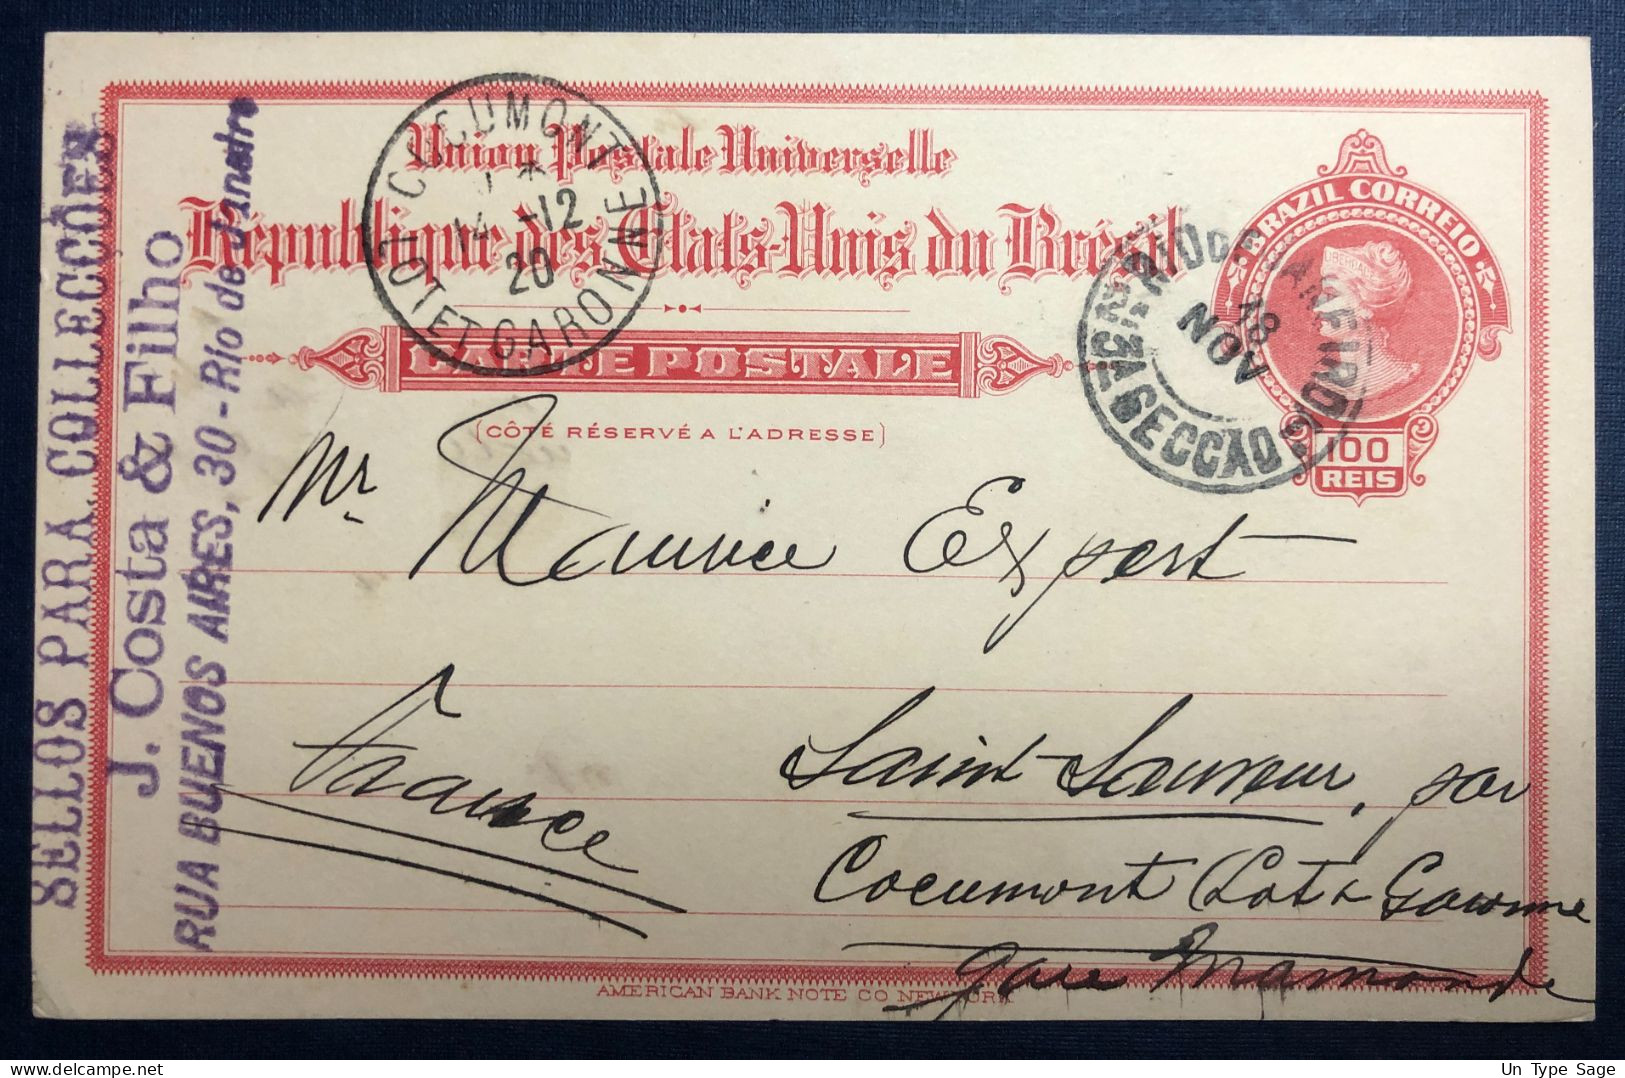 Union Postale Universelle
République des Etats-Unis du Brésil
CARTE POSTALE
(CÔTÉ RÉSERVÉ A L'ADRESSE)
BRAZIL CORREIO
LIBERDADE
100
REIS
COCUMONT
*
14 -12
20
LOT ET GARONNE
RIO DE JANEIRO
18
NOV
SECCÃO
SELLOS PARA COLLECÇÕES
J. Costa & Filho
RUA BUENOS AIRES, 30 - Rio de Janeiro
Mr. Maurice Expert
Saint-Sauveur, par
France
Cocumont (Lot & Garonne
gare Marmande
AMERICAN BANK NOTE CO NEW YORK
Un Type Sage